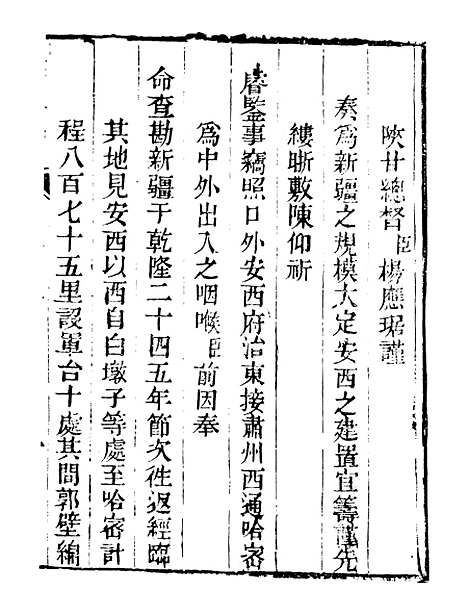 陜甘總督臣楊應琚謹
奏為新疆之規模大定安西之建置宜籌謹先
縷晣敷陳仰祈
睿鑒事竊照口外安西府治東接肅州西通哈密
為中外出入之咽喉臣前因奉
命查勘新疆于乾隆二十四五年節次徃返經臨
其地見安西以西自白墩子等處至哈密計
程八百七十五里設軍台十處其間郭壁綿